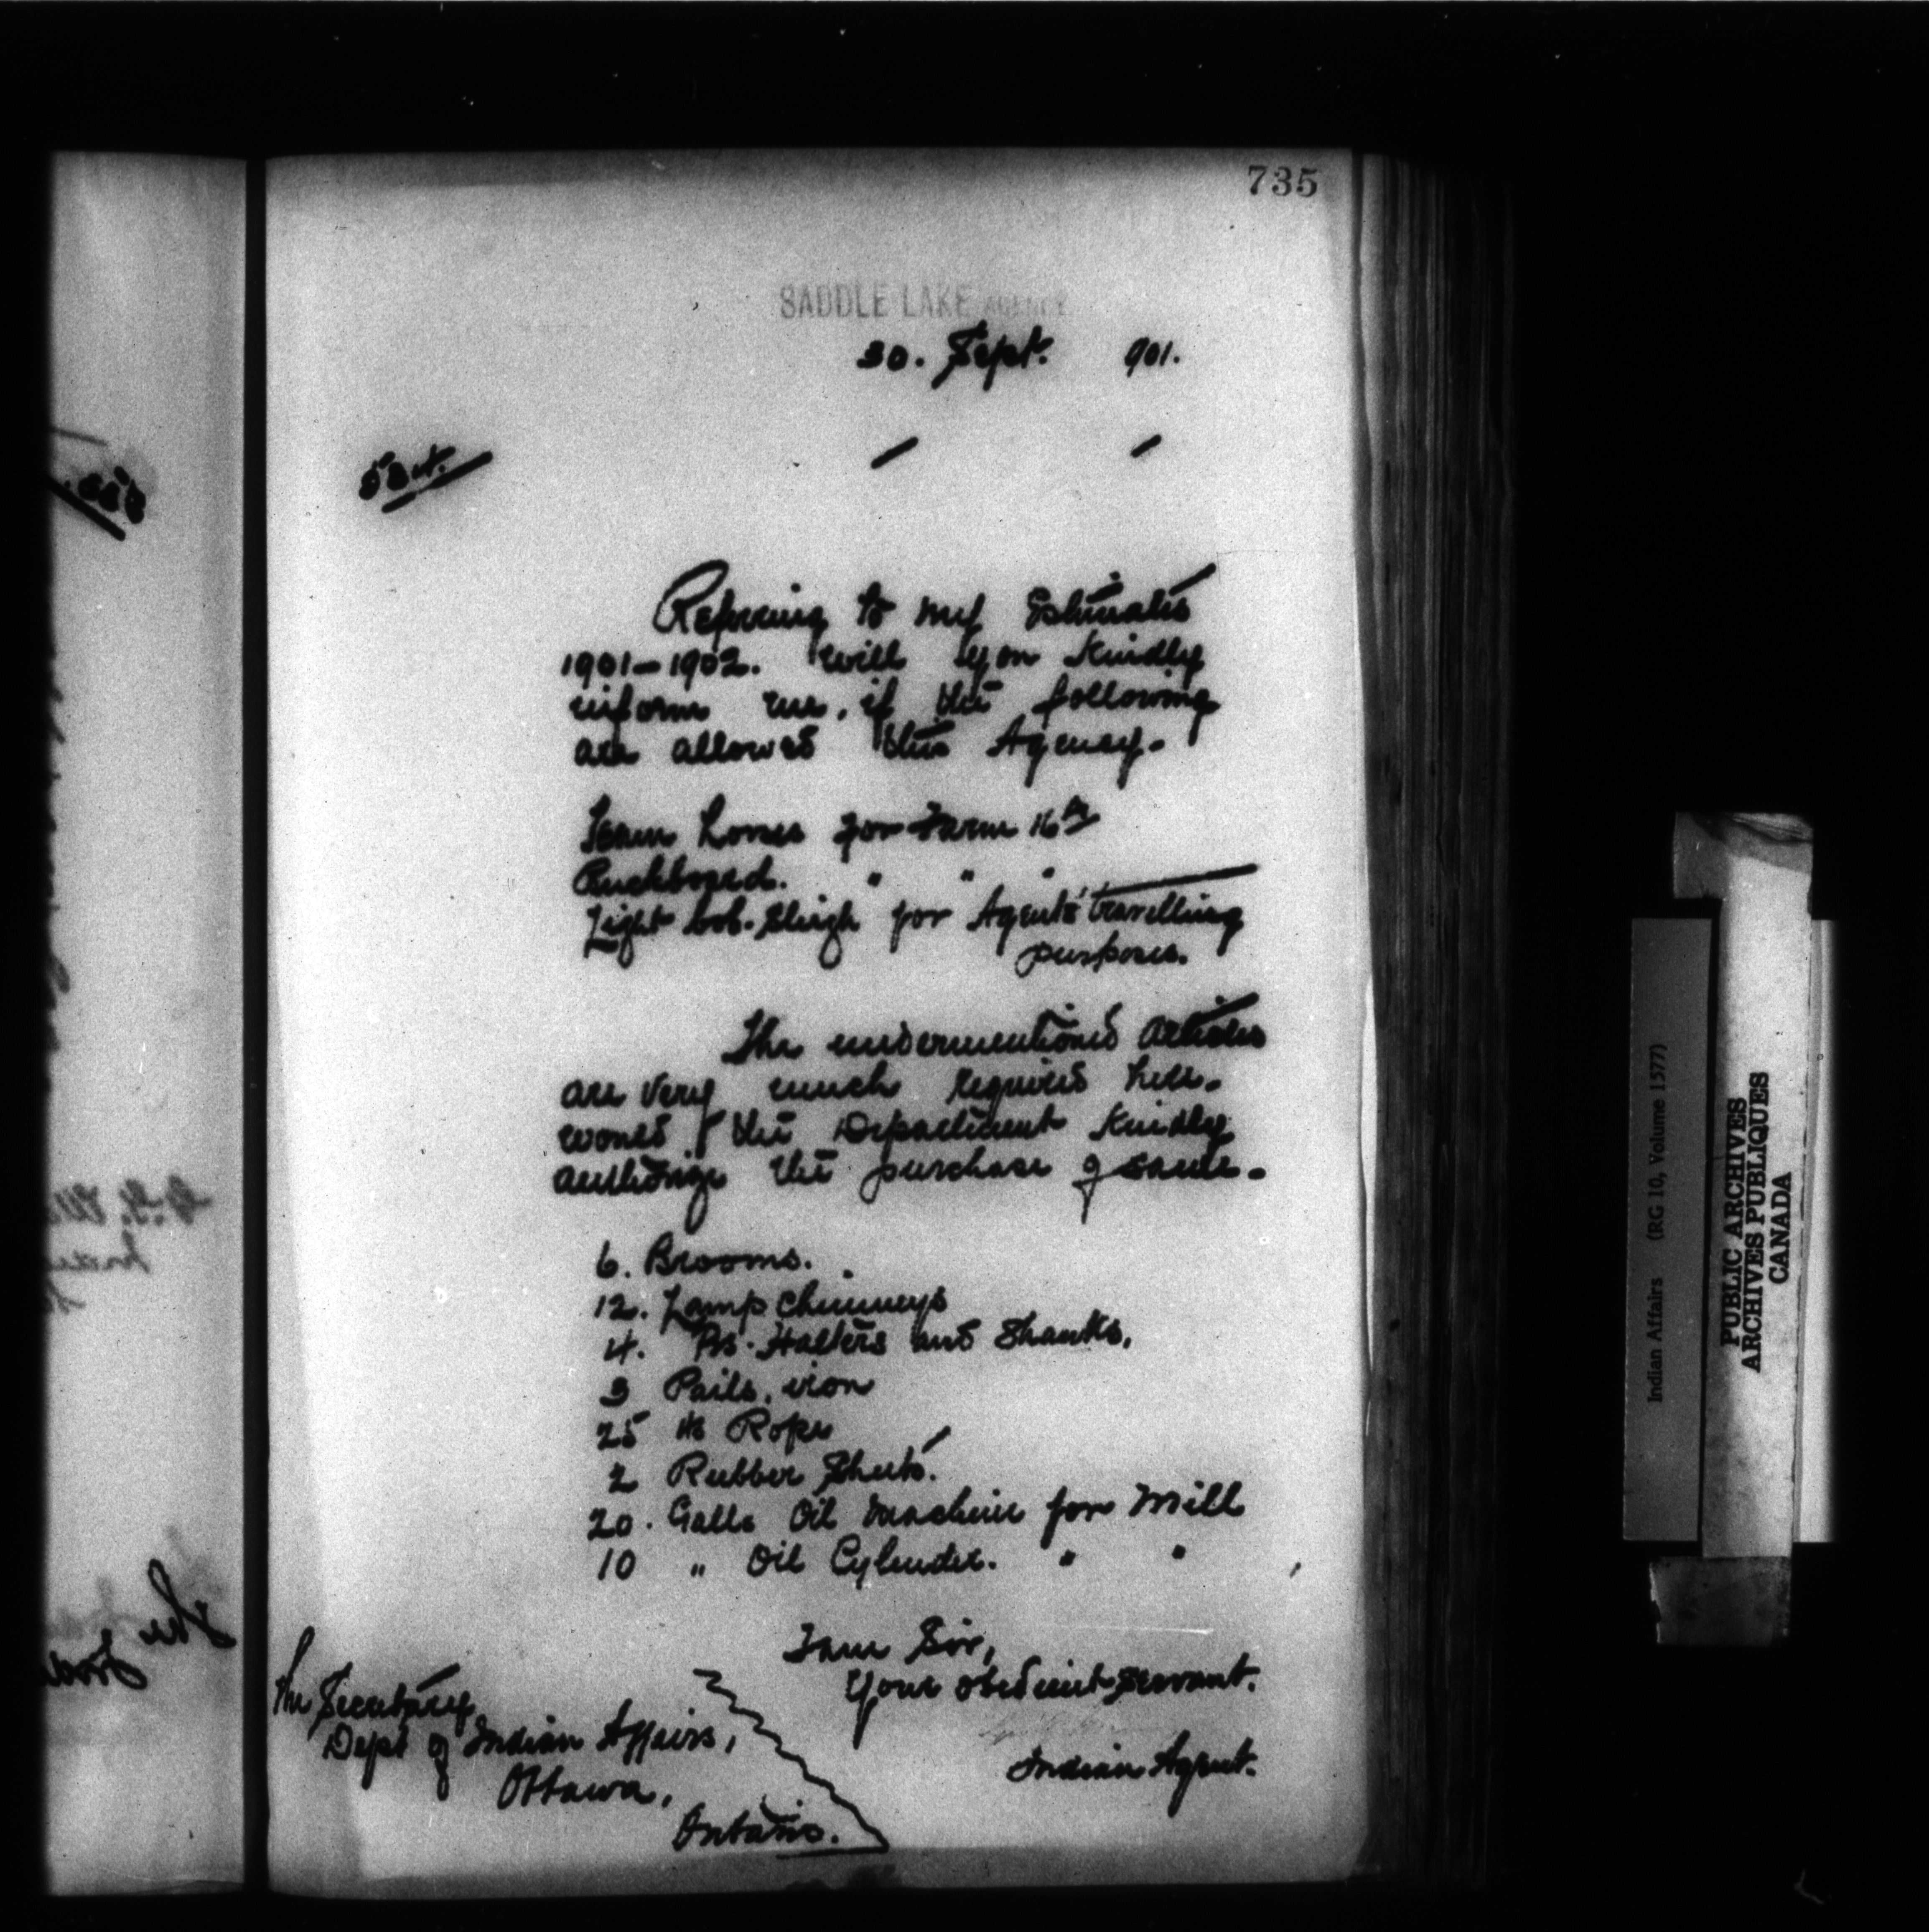 735
SADDLE LAKE AGENCY
30. Sept. 901.
Referring to my Estimates
1901–1902. Will you Kindly
inform me, if the following
are allowed this Agency.
Team horses for Farm 16th
Buckboard. " " "
Light bob. sleigh for Agents' travelling
purposes.
The undermentioned articles
are very much required here.
would the Department Kindly
authorize the purchase of same.
6. Brooms.
12. Lamp chimneys
4. Prs. Halters and Shanks.
3 Pails, iron
25 lbs Rope
2 Rubber Sheets.
20. Galls Oil Machine for Mill
10 " Oil Cylinder. " "
I am Sir,
Your obedient servant.
Indian Agent.
The Secretary
Dept of Indian Affairs,
Ottawa,
Ontario.
Indian Affairs (RG 10, Volume 1577)
PUBLIC ARCHIVES
ARCHIVES PUBLIQUES
CANADA